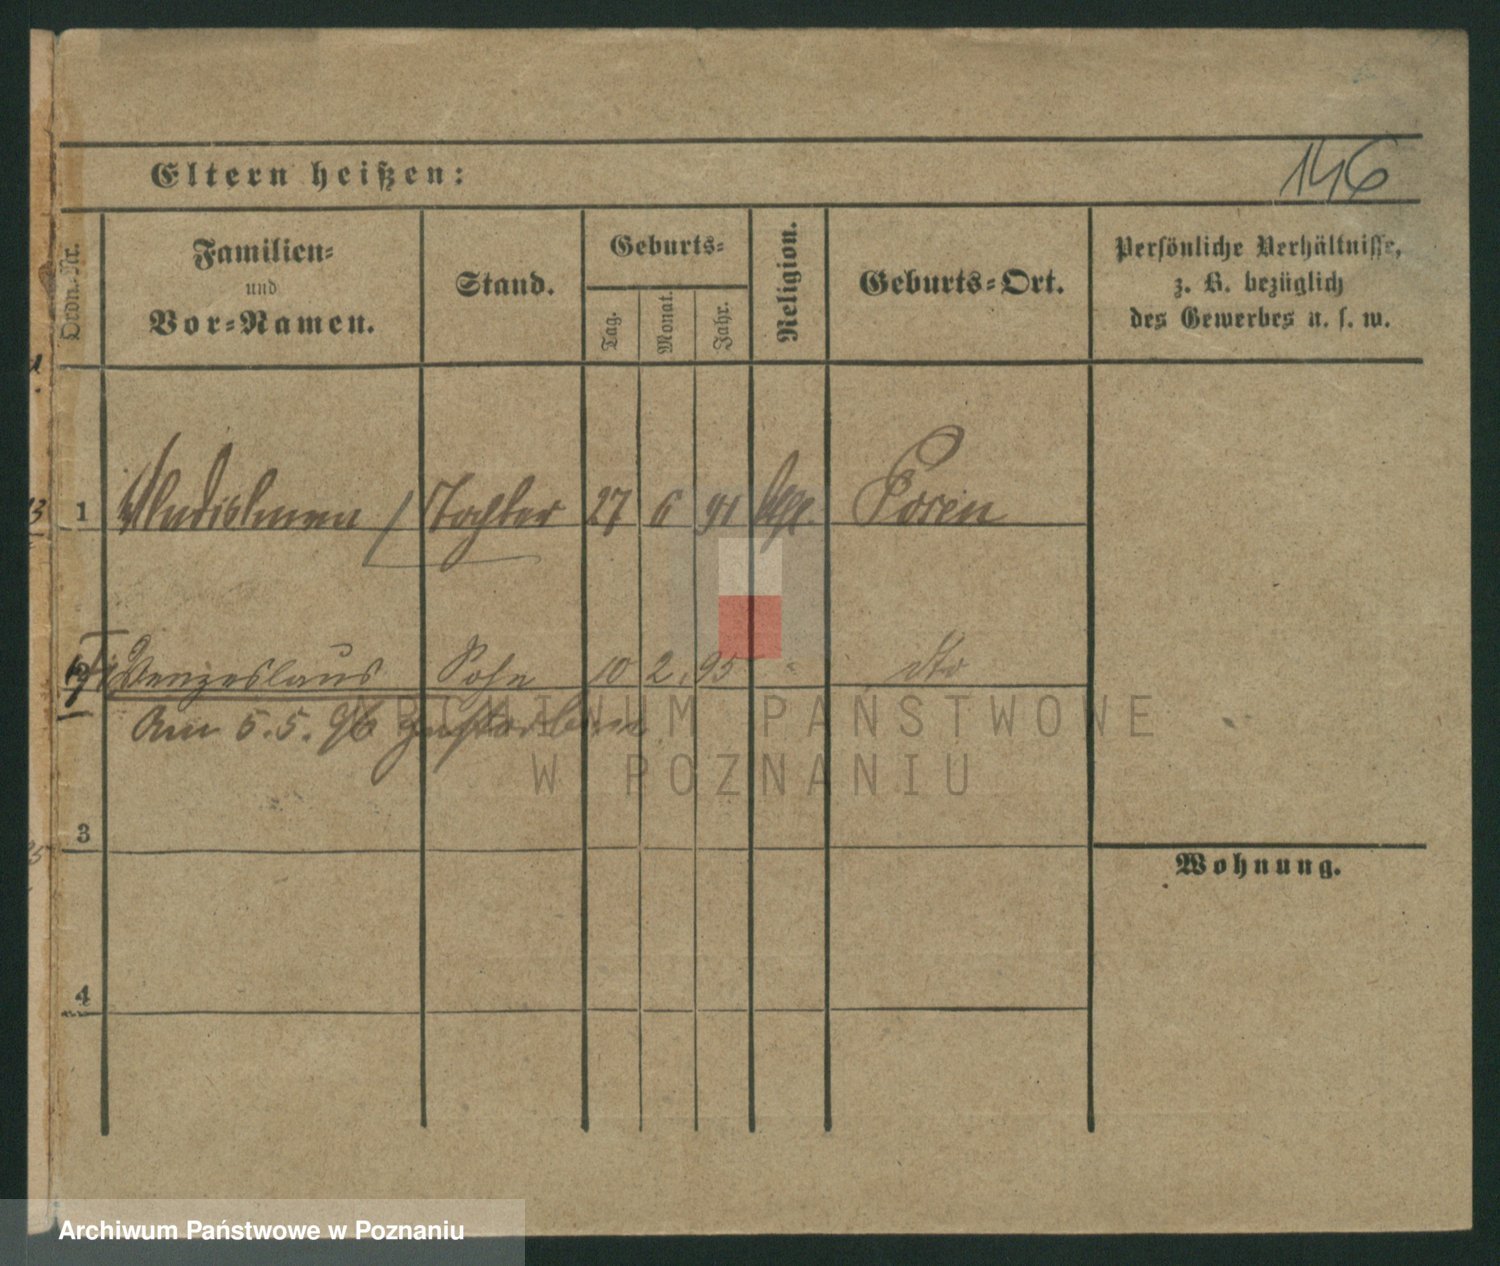 Eltern heißen:
146
Ordn.-Nr.
Familien-
und
Vor-Namen.
Stand.
Geburts-
Tag.
Monat.
Jahr.
Religion.
Geburts-Ort.
Persönliche Verhältnisse,
z. B. bezüglich
des Gewerbes u. s. w.
1 Tochter 27 6 91 Posen
Wenzeslaus Sohn 10 2. 95 " dto
Am 5.5.96
3
Wohnung.
4
ARCHIWUM PAŃSTWOWE
W POZNANIU
Archiwum Państwowe w Poznaniu